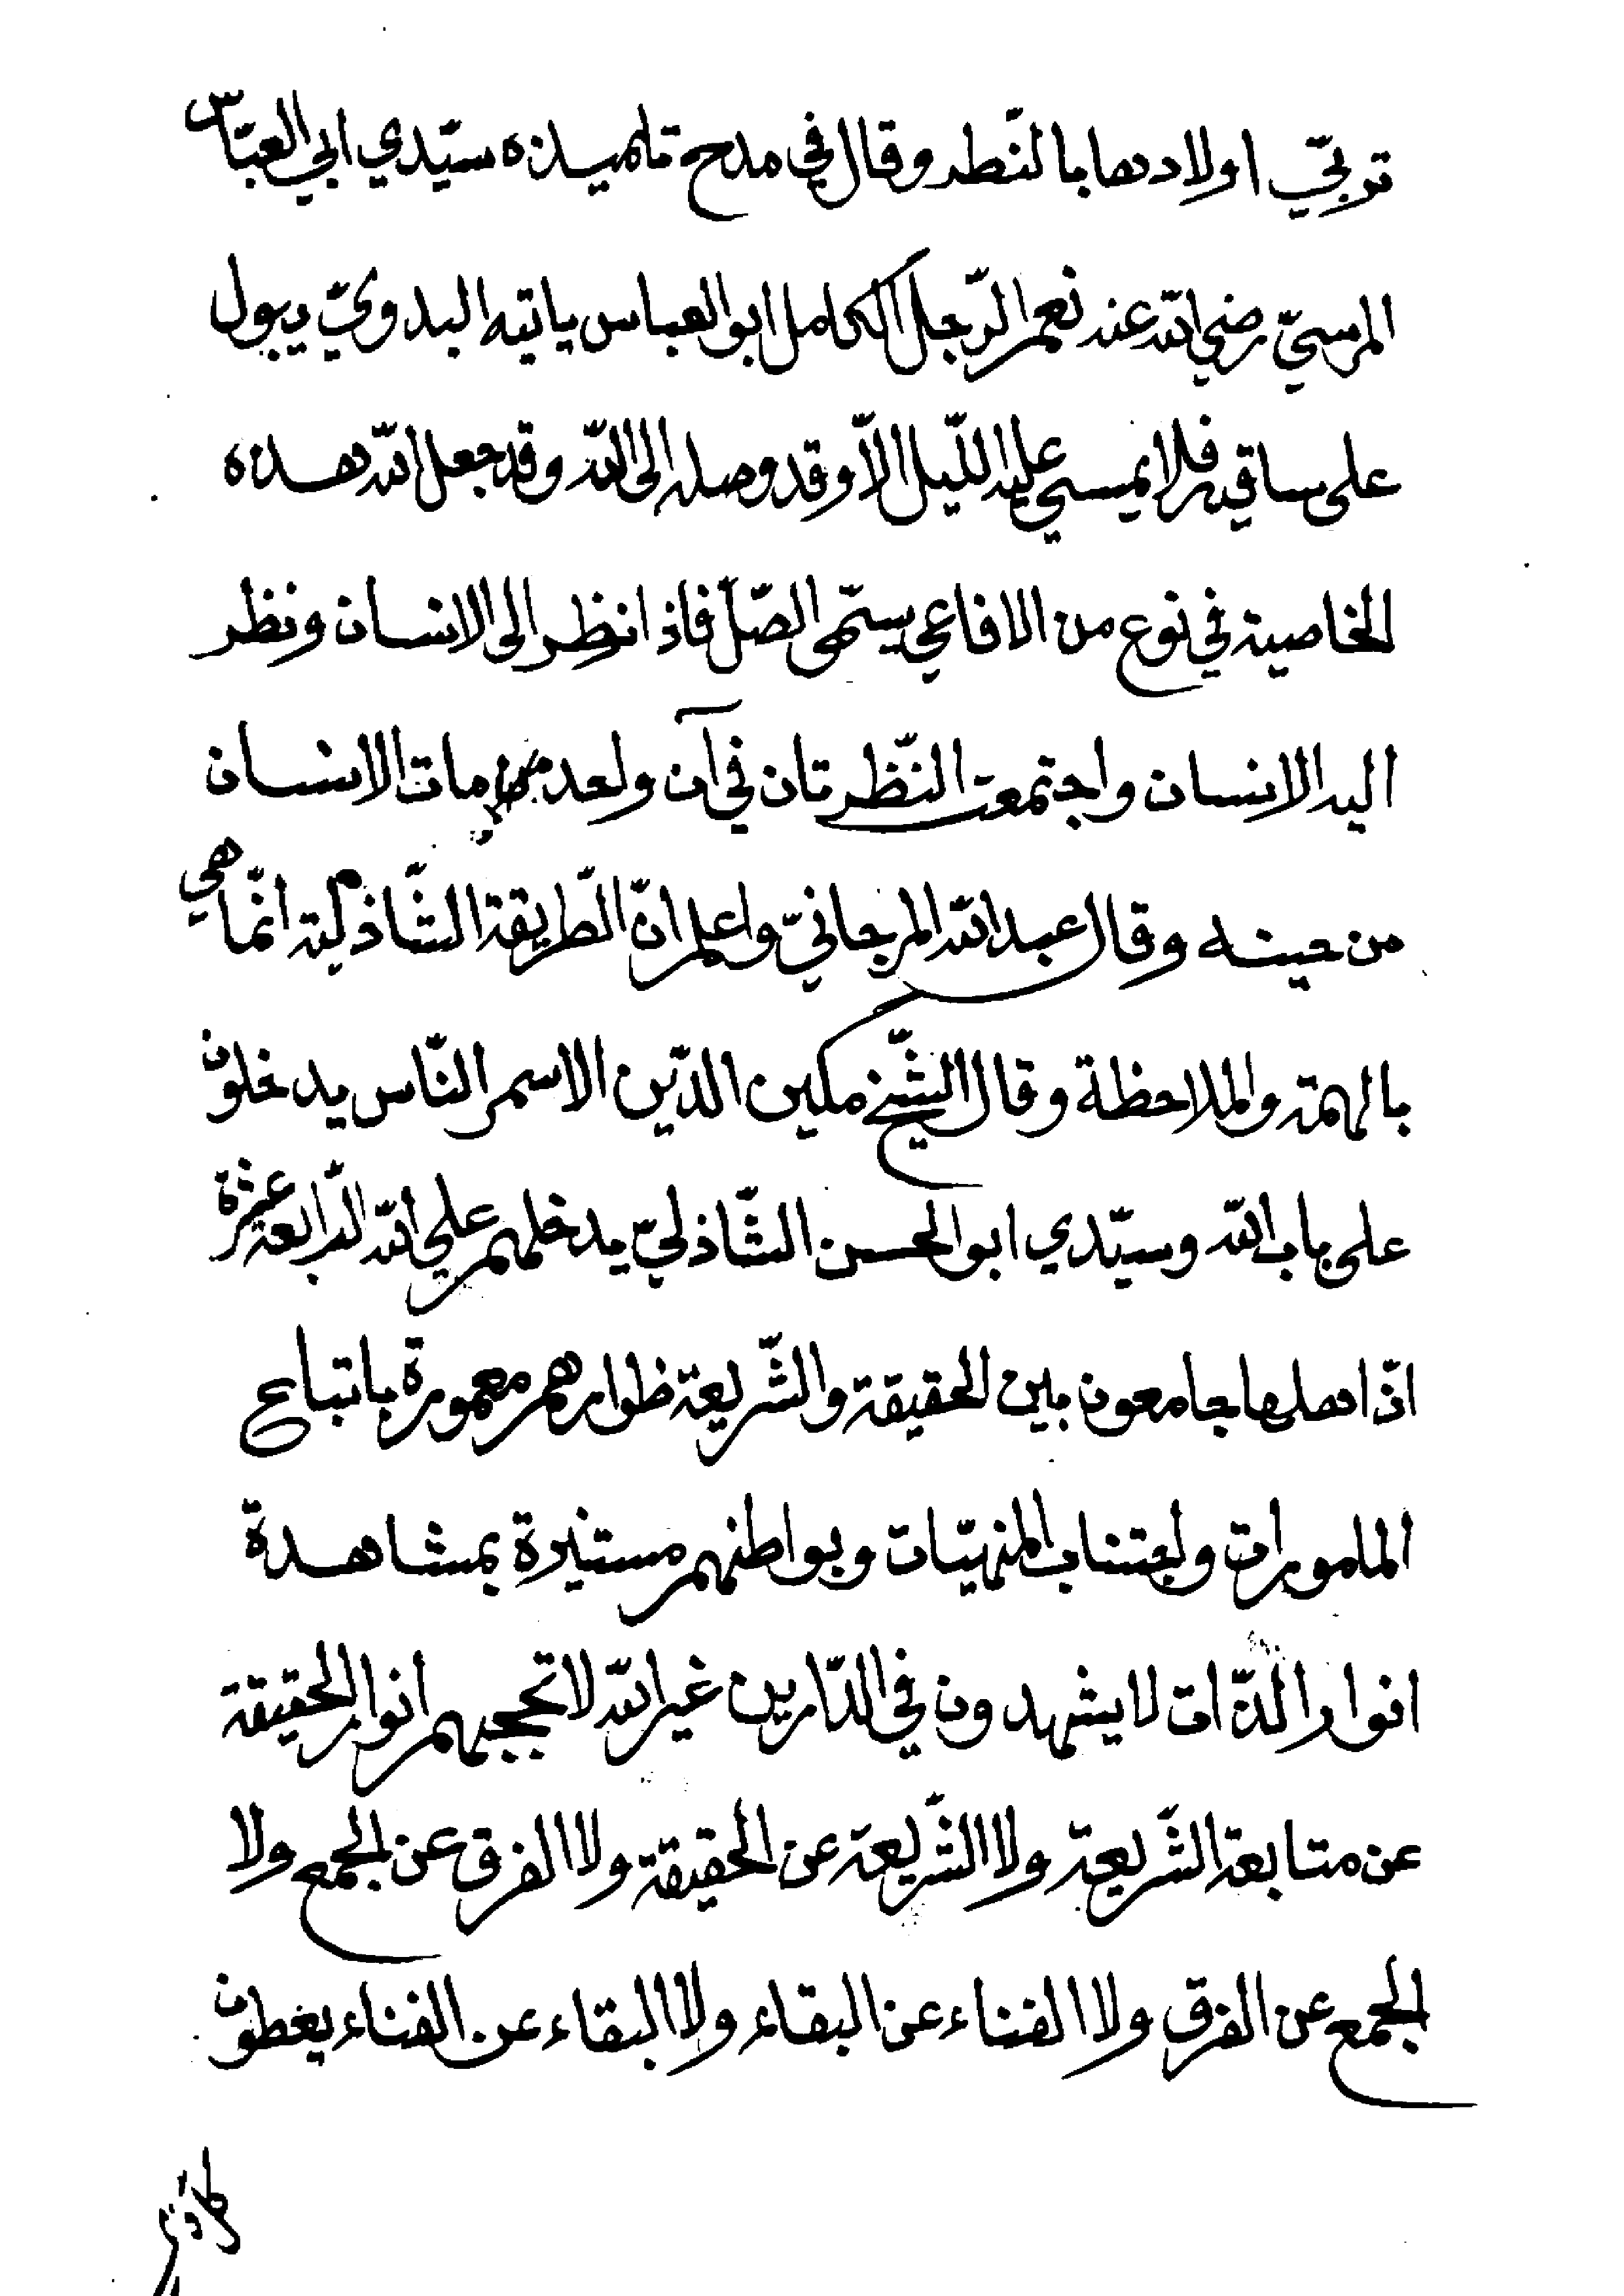 تربّي اولادها بالنّظر وقال في مدح تلميذه سيّدي ابي العبّاس
المرسيّ رضي الله عنه نعم الرّجل الكامل ابو العباس ياتيه البدويّ يبول
على ساقيه فلا يمسي عليه اللّيل الاّ وقد وصله الى الله وقد جعل الله هذه
الخاصية في نوع من الافاعي يسمّى الصّلّ فاذا نظر الى الانسان ونظر
اليه الانسان واجتمعت النّظرتان في آن واحد مات الانسان
من حينه وقال عبد الله المرجانيّ واعلم انّ الطّريقة الشّاذلية انّما هي
بالهمة والملاحظة وقال الشّيخ مكين الدّين الاسمر النّاس يدخلون
على باب الله وسيّدي ابو الحسن الشّاذليّ يدخلهم على الله الرّابعة عشرة
انّ اهلها جامعون بين الحقيقة والشّريعة ظواهرهم معمورة باتباع
المامورات واجتناب المنهيّات وبواطنهم مستنيرة بمشاهدة
انوار الذّات لا يشهدون في الدّارين غير الله لا تحجبهم انوار الحقيقة
عن متابعة الشّريعة ولا الشّريعة عن الحقيقة ولا الفرق عن الجمع ولا
الجمع عن الفرق ولا الفناء عن البقاء ولا البقاء عن الفناء يعطون